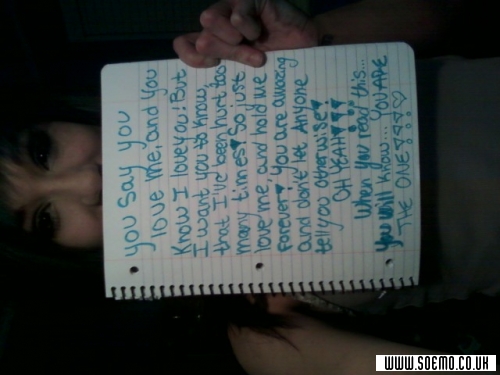 you say you
love me, and you
Know I love you; But
I want you to know,
that I've been hurt too
many times♥ So just
love me, and hold me
Forever♥ You are amazing
and don't let Anyone
tell you otherwise♥
OH YEAH♥♥♥
When you read this...
You will Know... YOU ARE
THE ONE♡♡♡♡
WWW.SOEMO.CO.UK